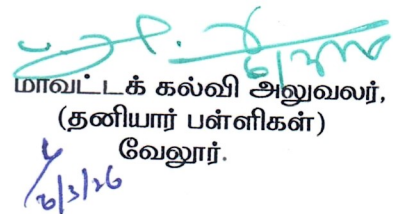 மாவட்டக் கல்வி அலுவலர்,
(தனியார் பள்ளிகள்)
வேலூர்.
6/3/26